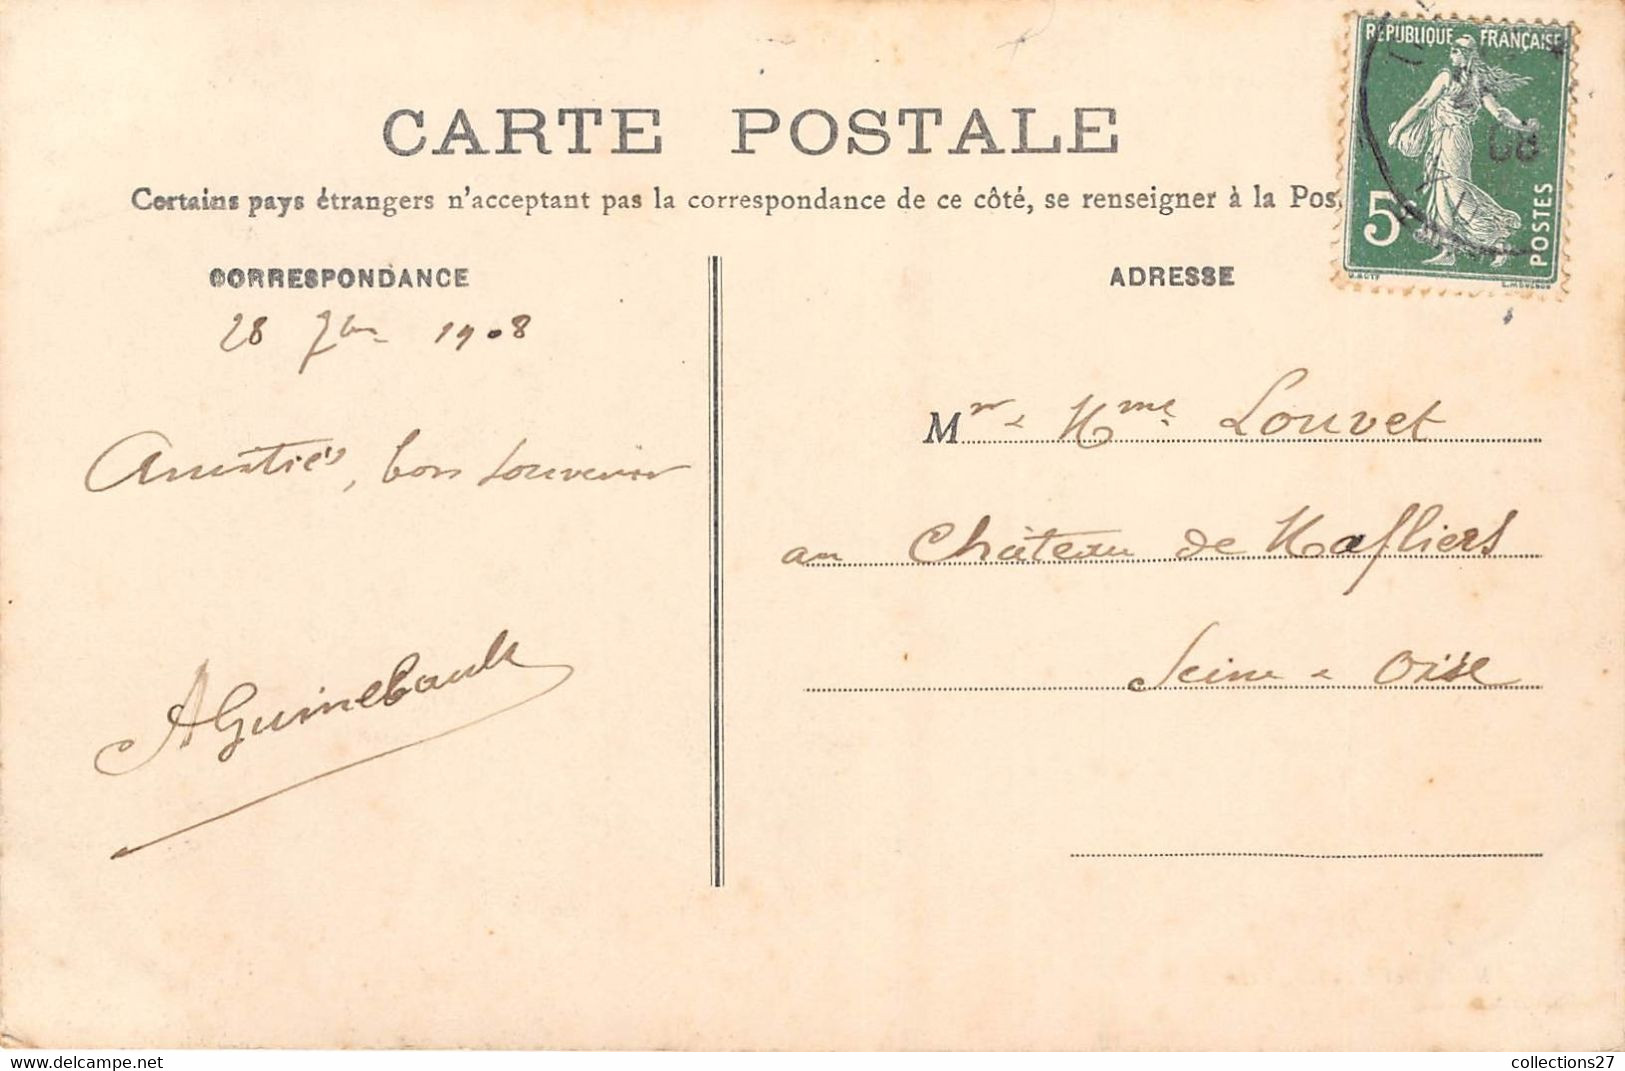 RÉPUBLIQUE FRANÇAISE
5
POSTES
08
CARTE POSTALE
Certains pays étrangers n'acceptant pas la correspondance de ce côté, se renseigner à la Pos
CORRESPONDANCE
28 7bre 1908
Amitiés, bon souvenir
AGuinebault
ADRESSE
Mr & Mme Louvet
au Château de Mafliers
Seine & Oise
www.delcampe.net
collections27